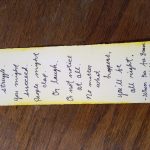 struggle
You might
succeed.
People might
clap
Or laugh.
Or not notice
at all.
No matter
what
happens,
You'll be
all right.